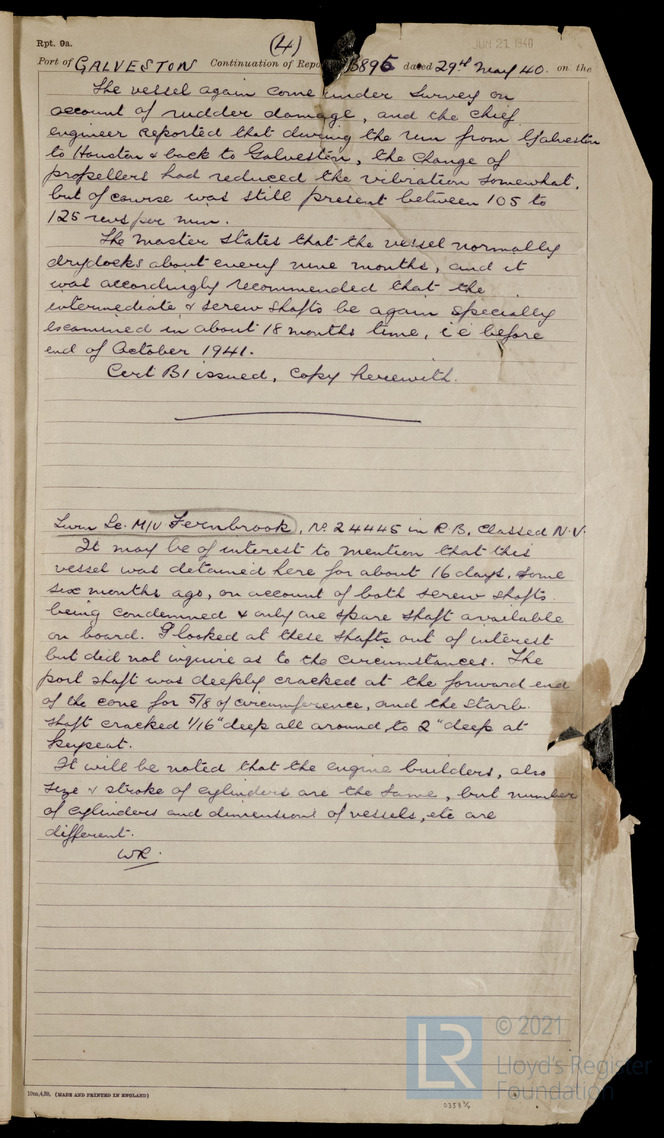 Rpt. 9a.
(4)
JUN 21 1940
Port of GALVESTON Continuation of Repo 3895 dated 29th May 40. on the
The vessel again come under survey on
account of rudder damage, and the chief
engineer reported that during the run from Galveston
to Houston & back to Galveston, the change of
propellers had reduced the vibration somewhat,
but of course was still present between 105 to
125 revs per min.
The master states that the vessel normally
drydocks about every nine months, and it
was accordingly recommended that the
intermediate & screw shafts be again specially
examined in about 18 months time, i e before
end of October 1941.
Cert B1 issued, copy herewith.
Twin Sc. M/V Fernbrook, No. 24445 in R.B. Classed N.V.
It may be of interest to mention that this
vessel was detained here for about 16 days, some
six months ago, on account of both screw shafts
being condemned & only one spare shaft available
on board. I looked at these shafts out of interest
but did not inquire as to the circumstances. The
port shaft was deeply cracked at the forward end
of the cone for 5/8 of circumference, and the starb.
shaft cracked 1/16" deep all around to 2" deep at
keyseat.
It will be noted that the engine builders, also
size & stroke of cylinders are the same, but number
of cylinders and dimensions of vessels, etc are
different.
WR.
10m,4,39. (MADE AND PRINTED IN ENGLAND)
LR
© 2021
Lloyd's Register
Foundation